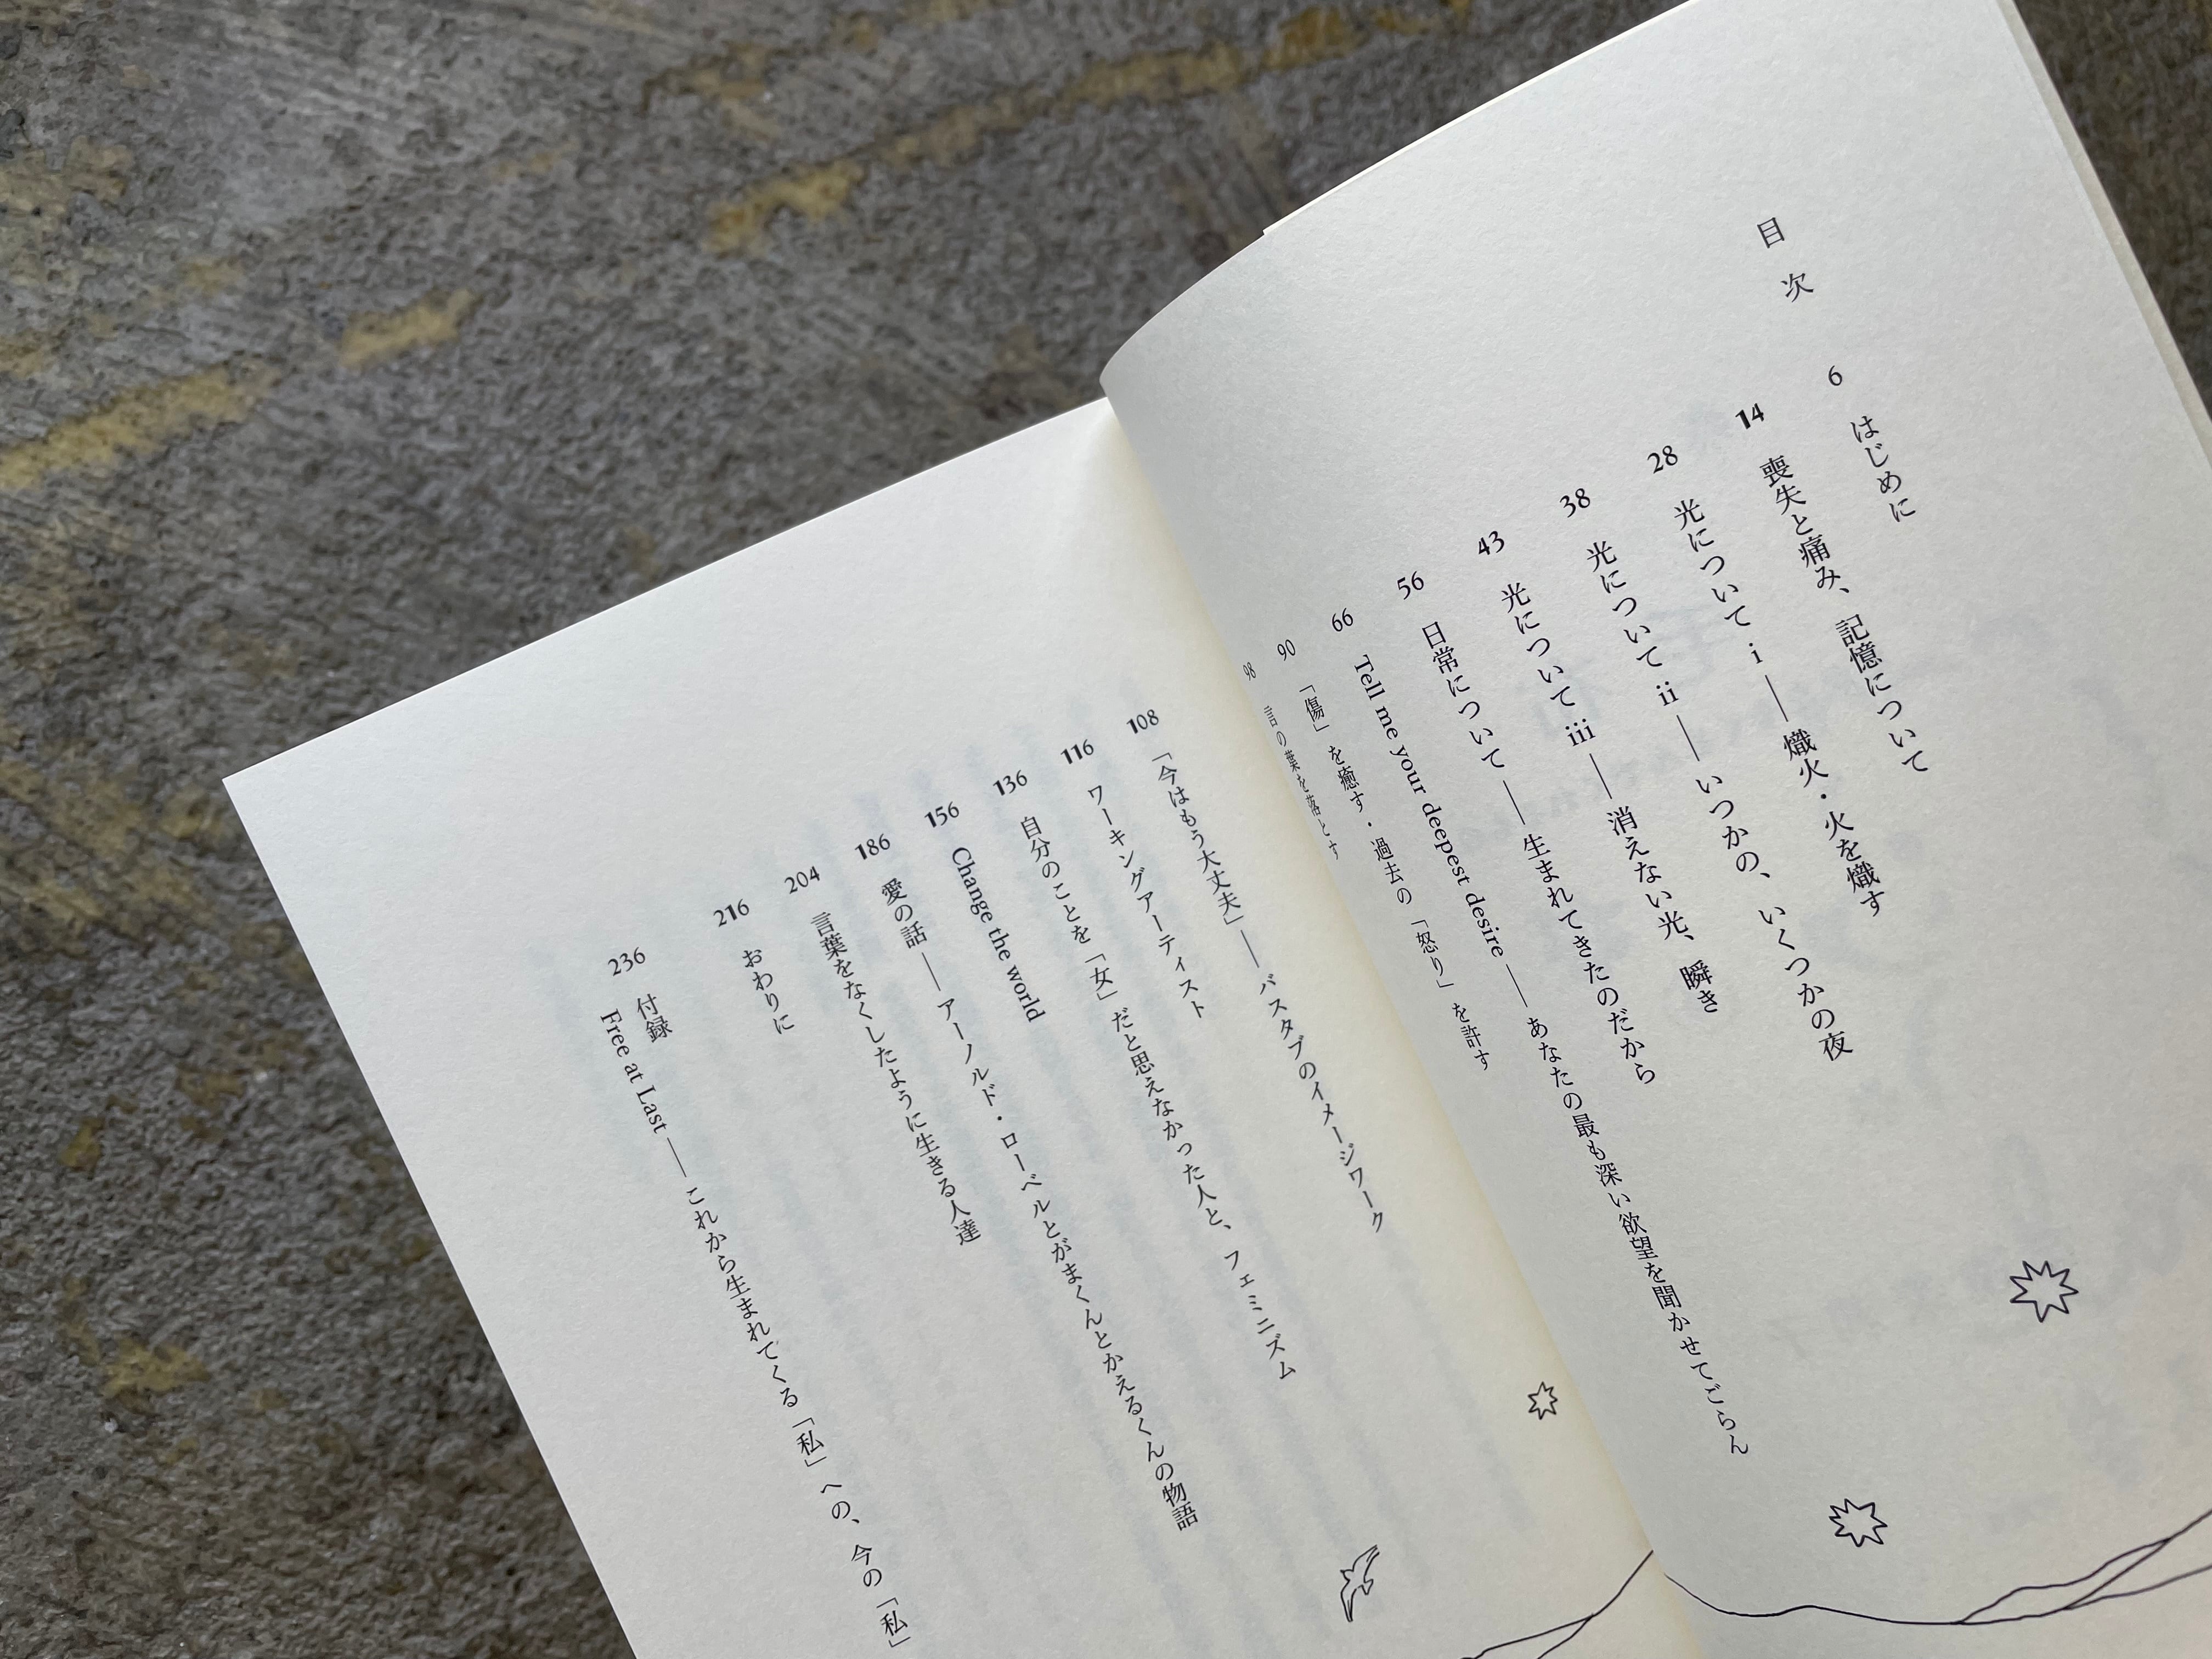 目次
6 はじめに
14 喪失と痛み、記憶について
28 光について・i ── 熾火・火を熾す
38 光について ii ── いつかの、いくつかの夜
43 光について iii ── 消えない光、瞬き
56 日常について ── 生まれてきたのだから
66 Tell me your deepest desire ── あなたの最も深い欲望を聞かせてごらん
90 「傷」を癒す・過去の「怒り」を許す
98 言の葉を落とす
108 「今はもう大丈夫」── バスタブのイメージワーク
116 ワーキングアーティスト
136 自分のことを「女」だと思えなかった人と、フェミニズム
156 Change the world
186 愛の話 ── アーノルド・ローベルとがまくんとかえるくんの物語
204 言葉をなくしたように生きる人達
216 おわりに
236 付録
Free at Last ── これから生まれてくる「私」への、今の「私」